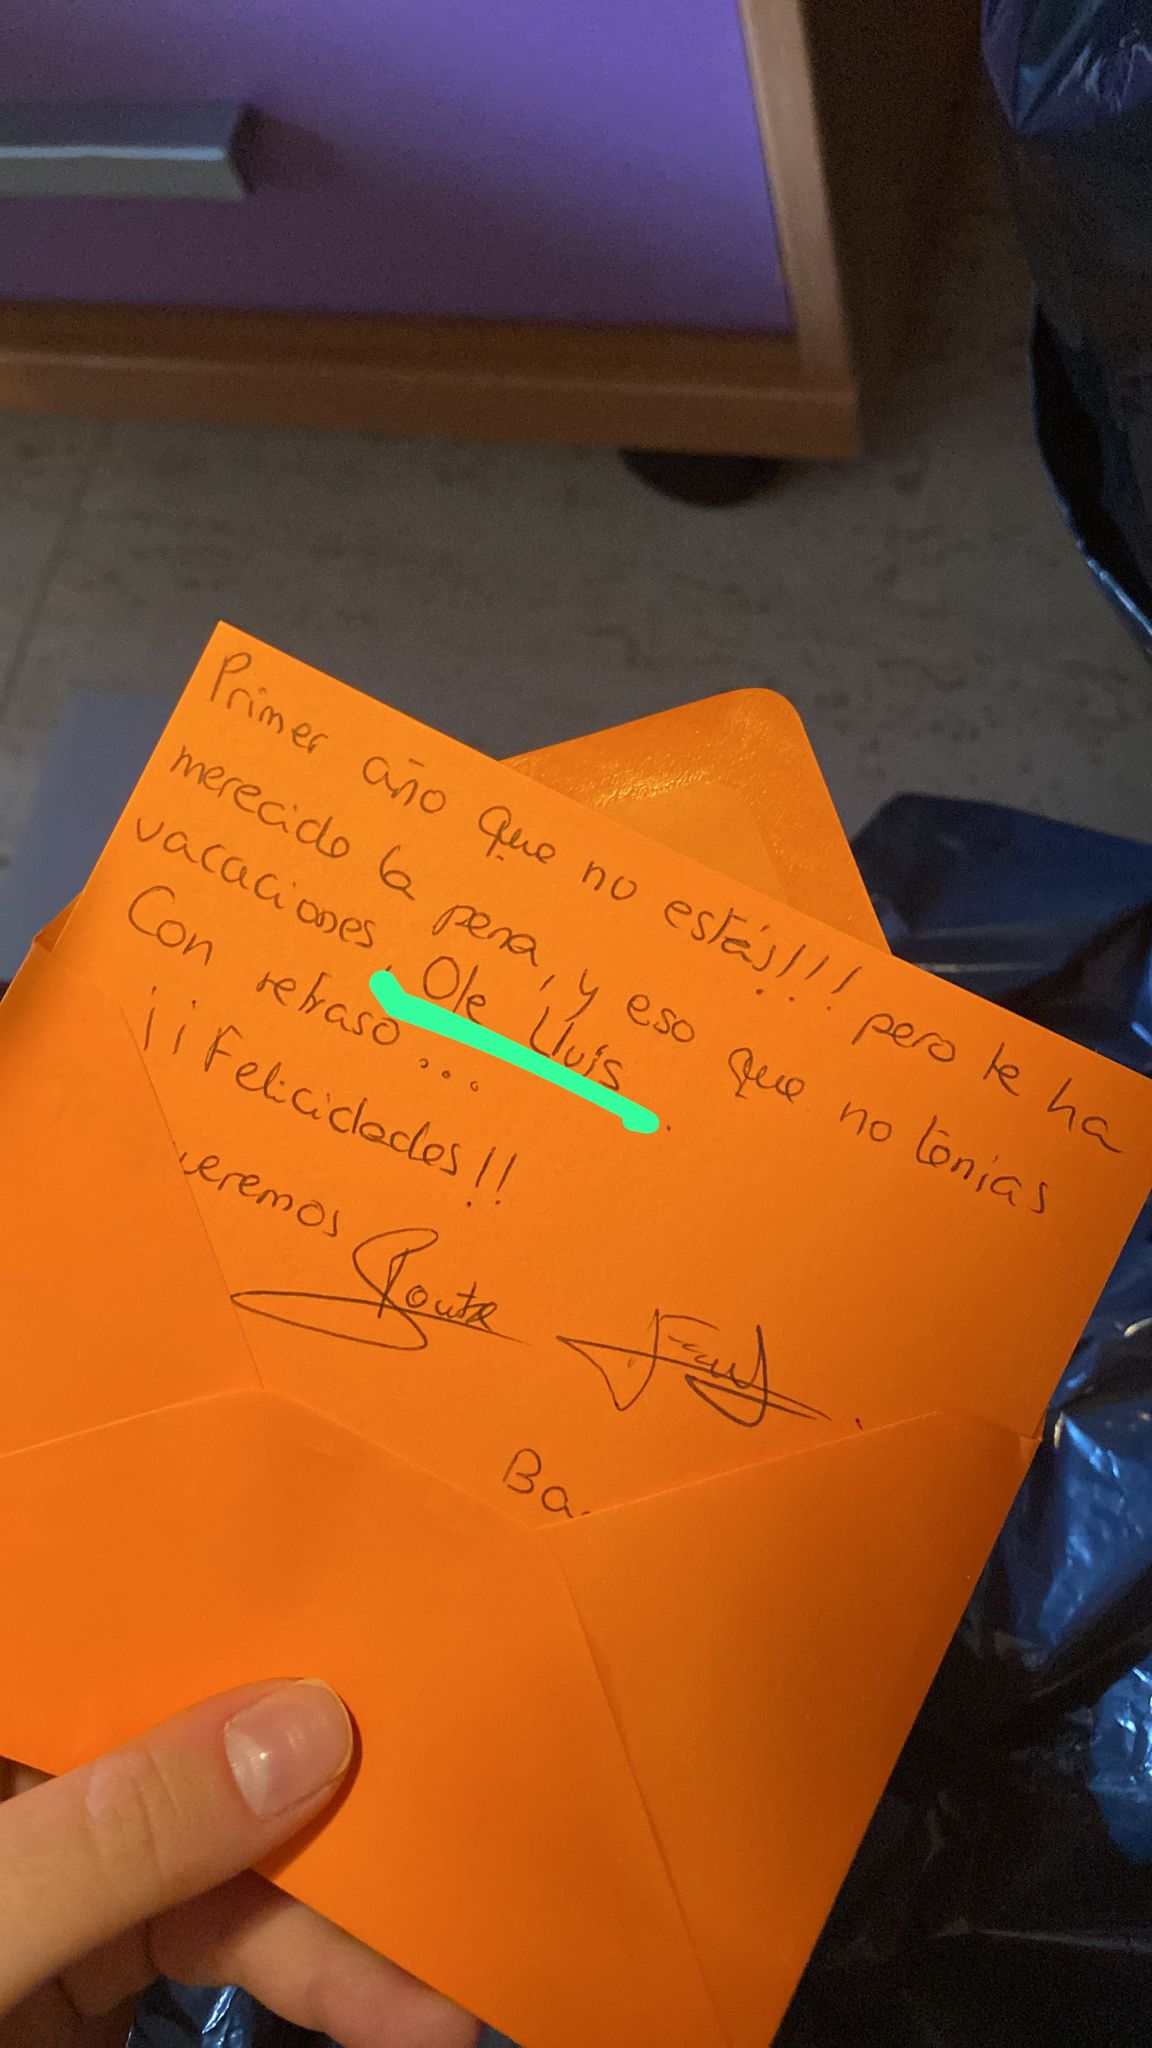 Primer año que no estás!!! pero te ha
merecido la pena, y eso que no tenias
vacaciones. Ole Lluís.
Con retraso...
¡¡Felicidades!!
eremos
Ba